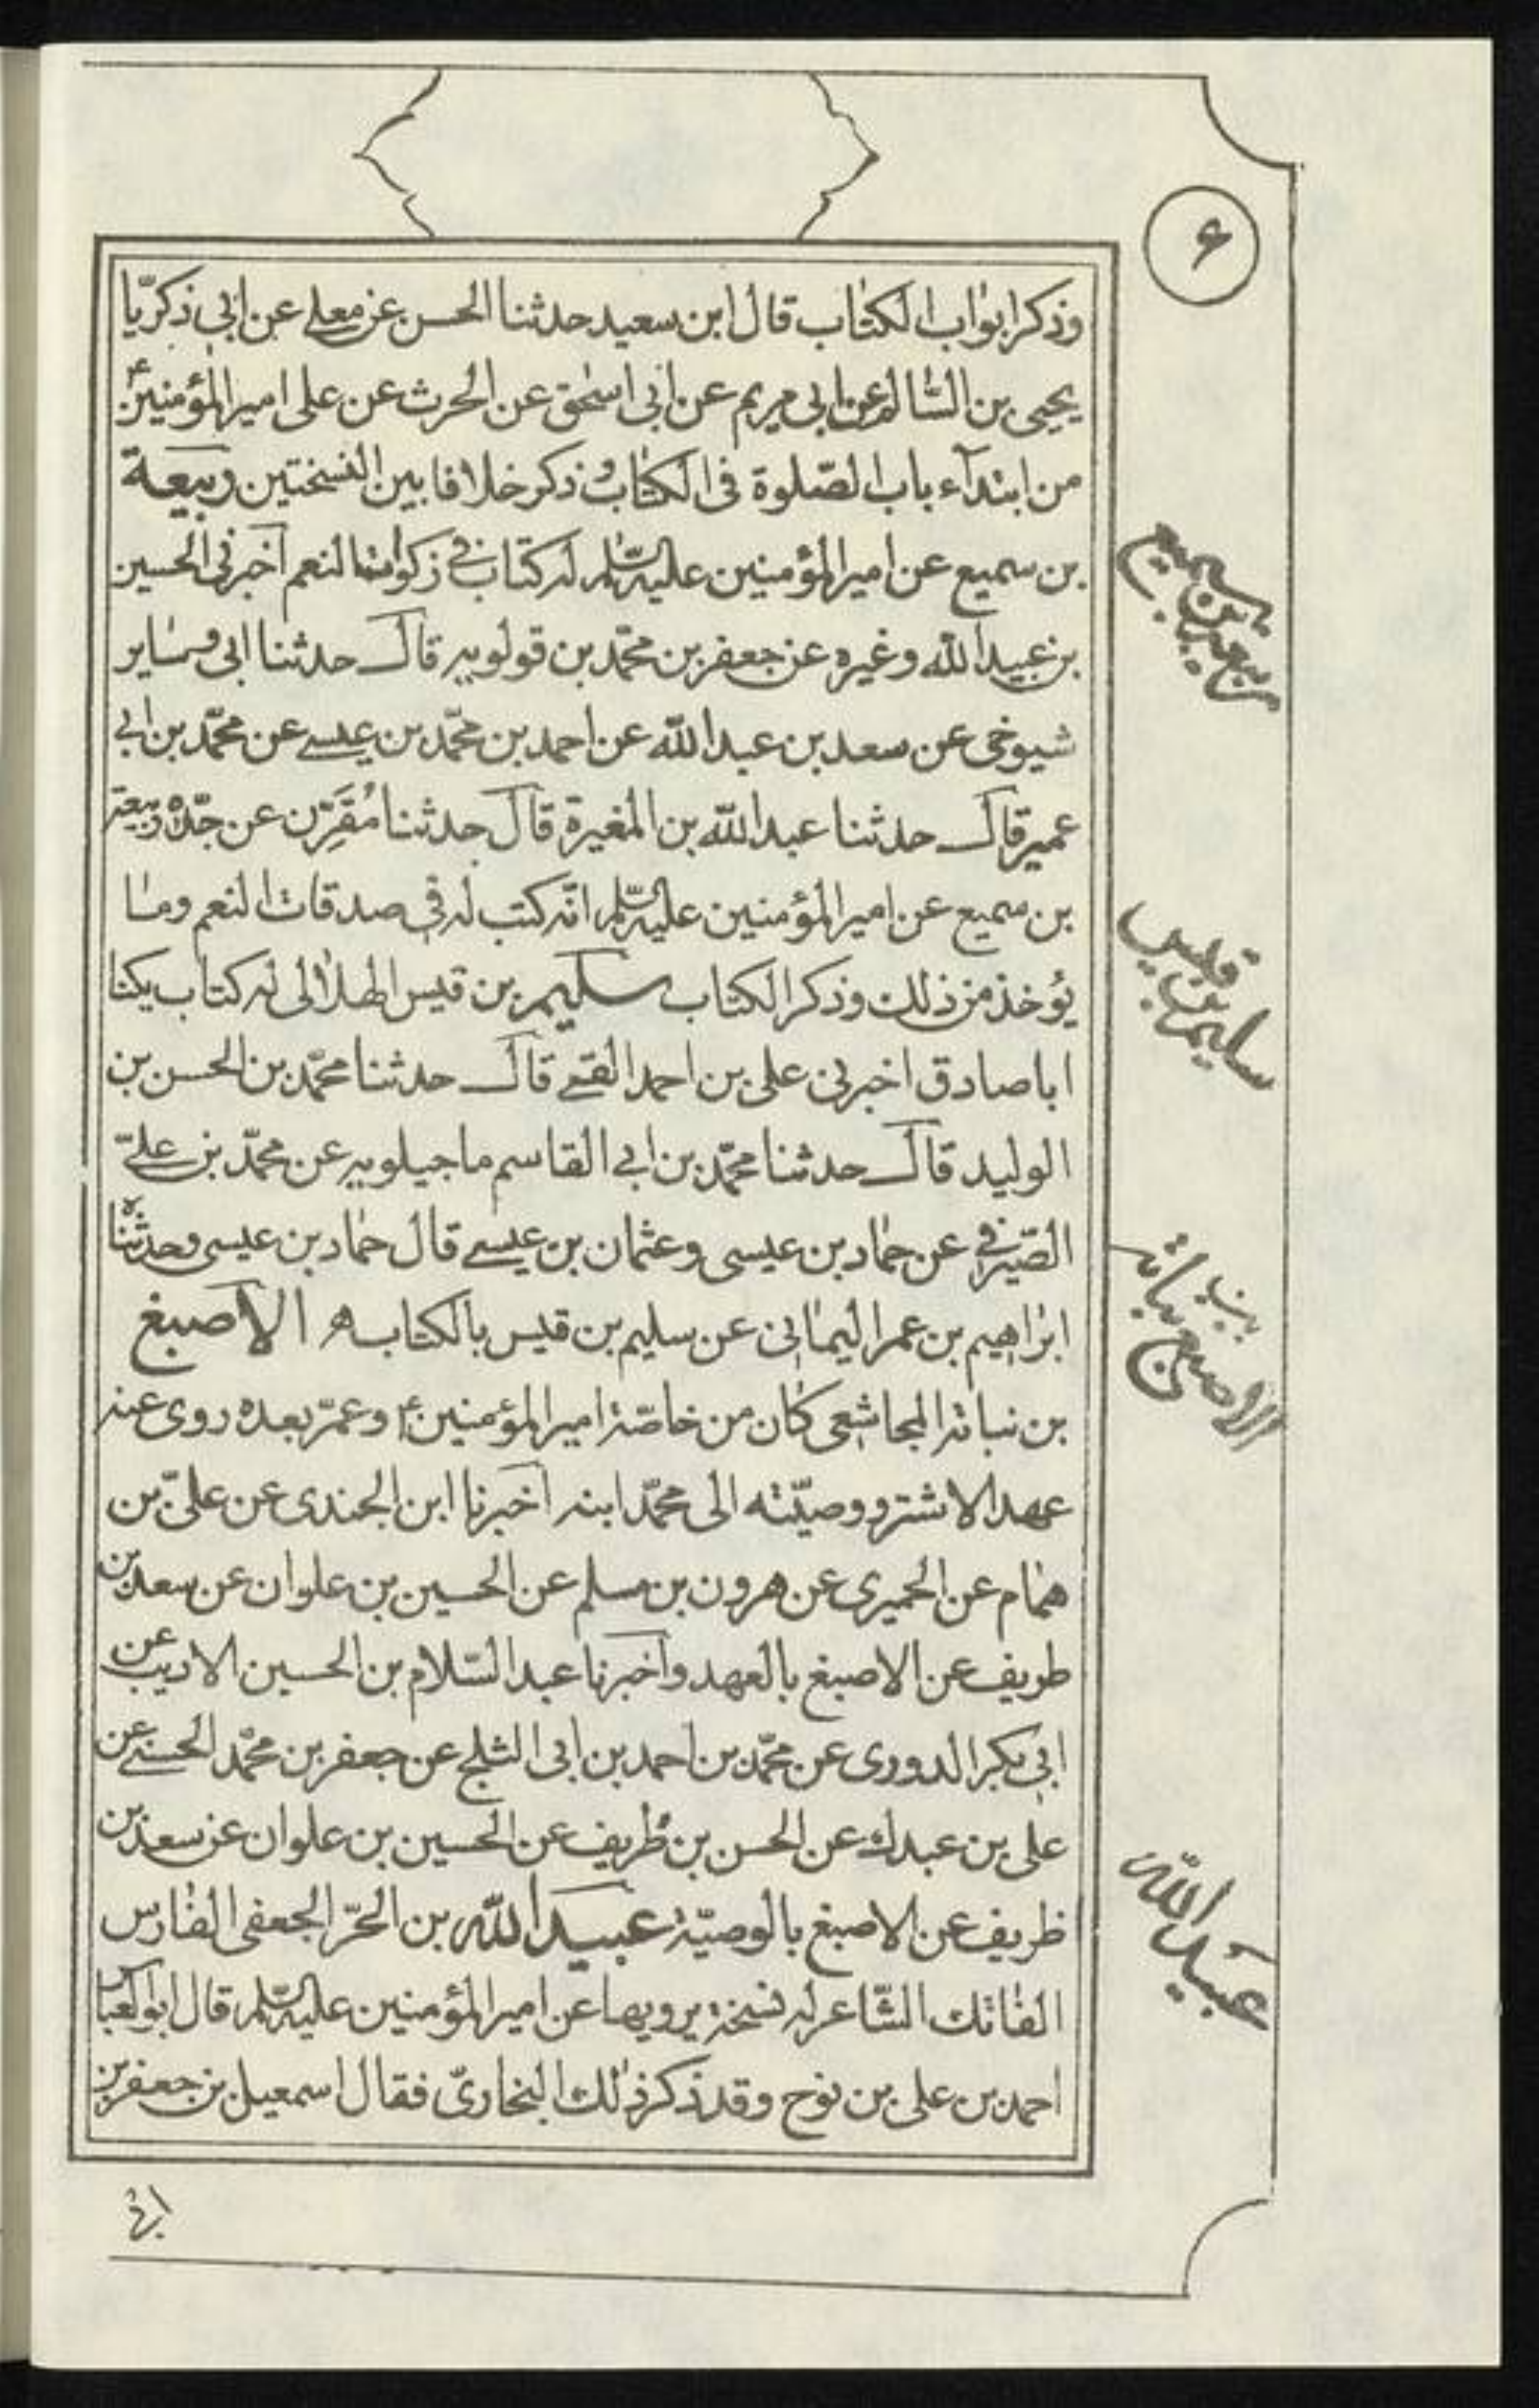 ۶
وذكر ابواب الكتاب قال ابن سعيد حدثنا الحسن عن معلى عن ابي زكريّا
يحيى بن السّالم عن ابي مريم عن ابي اسحق عن الحرث عن على امير المؤمنين ع
من ابتدآء باب الصّلوة فى الكتاب وذكر خلافا بين النسختين ربيعة
بن سميع عن امير المؤمنين عليه السّلم له كتاب في زكوات النعم اخبرنى الحسين
بن عبيد الله وغيره عن جعفر بن محمّد بن قولويه قال حدثنا ابى وساير
شيوخى عن سعد بن عبد الله عن احمد بن محمّد بن عيسى عن محمّد بن ابي
عمير قال حدثنا عبد الله بن المغيرة قال حدثنا مُقَرِّن عن جدّه ربيعة
بن سميع عن امير المؤمنين عليه السّلم انّه كتب له في صدقات النعم وما
يؤخذ من ذلك وذكر الكتاب سليم بن قيس الهلالى له كتاب يكنا
اباصادق اخبرنى على بن احمد القمى قال حدثنا محمّد بن الحسن بن
الوليد قال حدثنا محمّد بن ابي القاسم ماجيلويه عن محمّد بن علىّ
الصّيرفي عن حماد بن عيسى وعثمان بن عيسى قال حماد بن عيسى وحدثنا ه
ابراهيم بن عمر اليمانى عن سليم بن قيس بالكتاب ه الاصبغ
بن نباته المجاشعى كان من خاصّة امير المؤمنين ع وعمّر بعده روى عنه
عهد الاشتر ووصيّته الى محمّد ابنه اخبرنا ابن الجندى عن علىّ بن
همام عن الحميرى عن هرون بن مسلم عن الحسين بن علوان عن سعد بن
طريف عن الاصبغ بالعهد واخبرنا عبد السّلام بن الحسين الاديب عن
ابي بكر الدورى عن محمّد بن احمد بن ابى الثلج عن جعفر بن محمّد الحسنى عن
على بن عبدك عن الحسن بن ظريف عن الحسين بن علوان عن سعد بن
ظريف عن الاصبغ بالوصيّة عبيد الله بن الحرّ الجعفى الفارس
الفاتك الشّاعر له نسخة يرويها عن امير المؤمنين عليه السّلم قال ابو العباس
احمد بن على بن نوح وقد ذكر ذلك البخارىّ فقال اسمعيل بن جعفر بن
ربيعة بن سميع
سليم بن قيس
الاصبغ بن نباته
عبيد الله